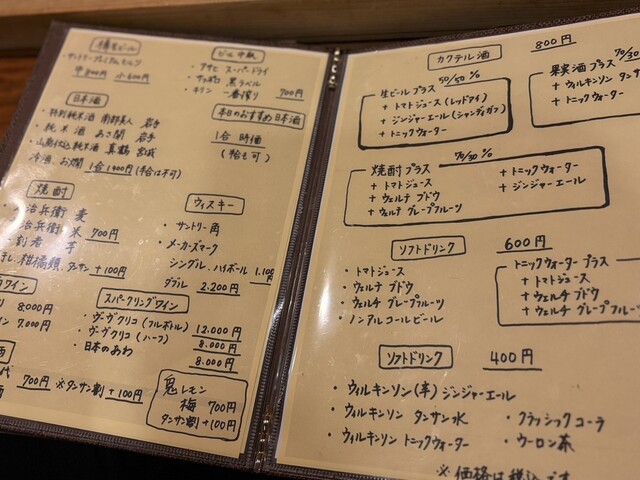 樽生ビール
・サントリープレミアムモルツ
中800円 小600円
ビール中瓶
・アサヒ スーパードライ
・サッポロ 黒ラベル
・キリン 一番搾り 700円
日本酒
・特別純米酒 南部美人 岩手
・純米酒 あさ開 岩手
・山廃仕込純米酒 真鶴 宮城
冷酒、お燗 1合1400円(半合は不可)
本日のおすすめ日本酒
1合 時価
(半合も可)
焼酎
治兵衛 麦
治兵衛 米 700円
柑橘類 タンサン+100円
ウィスキー
・サントリー角
・メーカーズマーク
シングル、ハイボール 1.100円
ダブル 2.200円
ワイン
8.000円
7.000円
スパークリングワイン
・ヴーヴクリコ(フルボトル) 12.000円
・ヴーヴクリコ(ハーフ) 8.000円
・日本のあわ 8.000円
700円 ※タンサン割+100円
鬼レモン
梅 700円
タンサン割+100円
カクテル酒 800円
50/50%
生ビールプラス
+トマトジュース(レッドアイ)
+ジンジャーエール(シャンディガフ)
+トニックウォーター
果実酒プラス 70/30
+ウィルキンソン タンサン
+トニックウォーター
70/30%
焼酎プラス
+トマトジュース
+ウェルチ ブドウ
+ウェルチ グレープフルーツ
+トニックウォーター
+ジンジャーエール
ソフトドリンク 600円
・トマトジュース
・ウェルチ ブドウ
・ウェルチ グレープフルーツ
・ノンアルコールビール
トニックウォータープラス
+トマトジュース
+ウェルチ ブドウ
+ウェルチ グレープフル
ソフトドリンク 400円
・ウィルキンソン(辛)ジンジャーエール
・ウィルキンソン タンサン水
・ウィルキンソン トニックウォーター
・クラッシックコーラ
・ウーロン茶
※価格は税込です